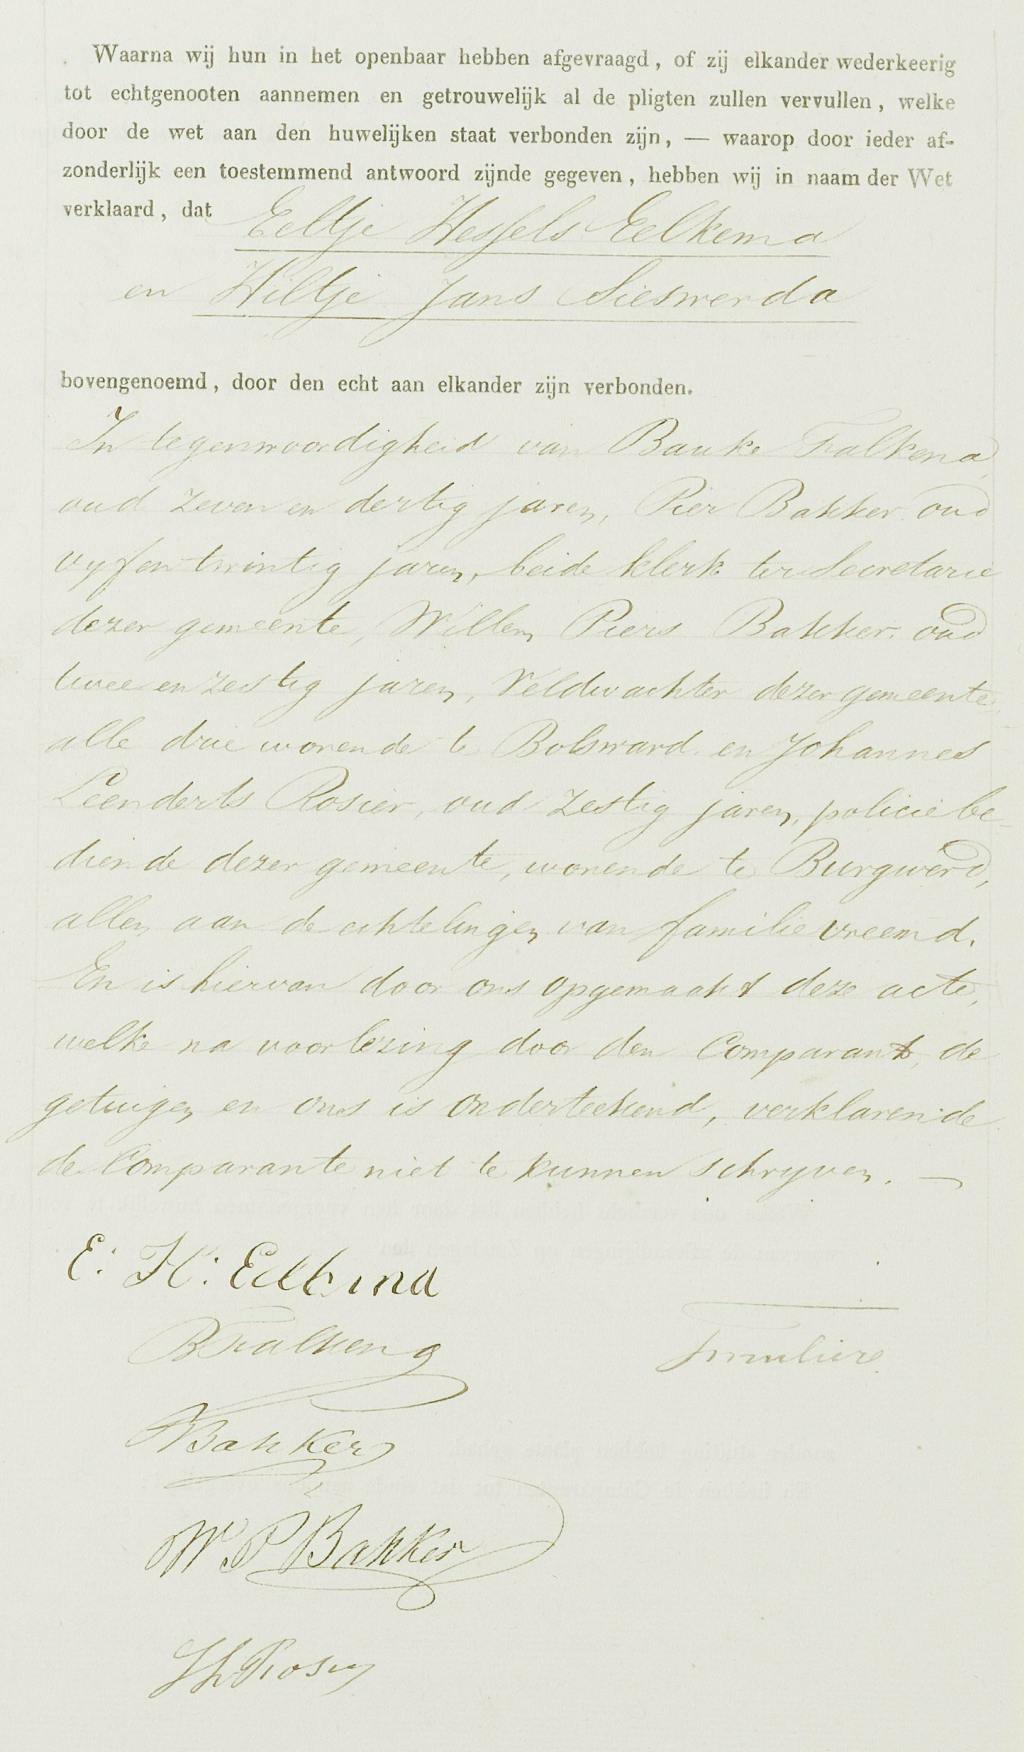 Waarna wij hun in het openbaar hebben afgevraagd, of zij elkander wederkeerig
tot echtgenooten aannemen en getrouwelijk al de pligten zullen vervullen, welke
door de wet aan den huwelijken staat verbonden zijn, — waarop door ieder af-
zonderlijk een toestemmend antwoord zijnde gegeven, hebben wij in naam der Wet
verklaard, dat Eeltje Hessels Eelkema
en Wiltje Jans Sieswerda
bovengenoemd, door den echt aan elkander zijn verbonden.
In tegenwoordigheid van Bauke Falkena
oud zeven en dertig jaren, Pier Bakker oud
vyf en twintig jaren, beide klerk ter Secretarie
dezer gemeente, Willem Piers Bakker oud
twee en zestig jaren, Veldwachter dezer gemeente
alle drie wonende te Bolsward en Johannes
Leenderts Rosier, oud zestig jaren, policie be-
diende dezer gemeente, wonende te Burgwerd,
allen aan de echtelingen van familie vreemd.
En is hiervan door ons opgemaakt deze acte,
welke na voorlezing door den Comparant, de
getuigen en ons is onderteekend, verklarende
de Comparante niet te kunnen schryven. —
E: H: Eelkema
B Falkena
P Bakker
W. P. Bakker